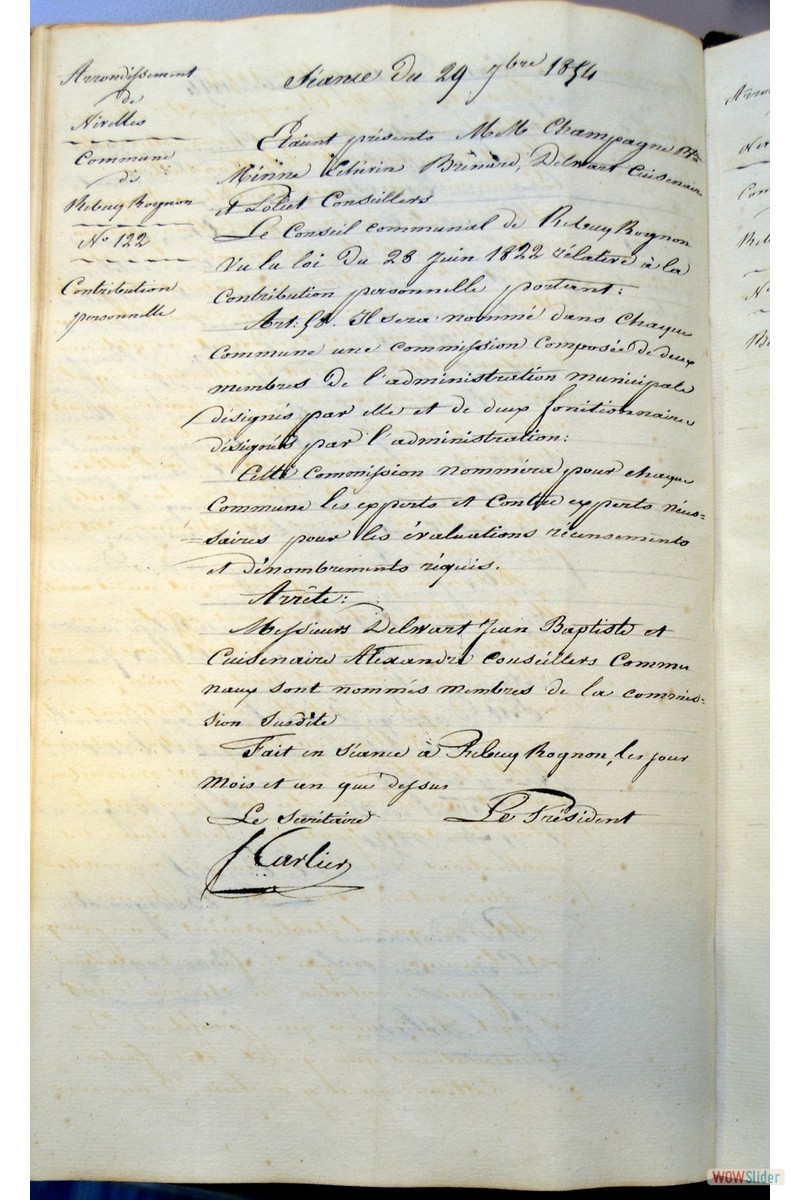 Arrondissement
de
Nivelles
Commune
de
Rebecq Rognon
N° 122
Contribution
personnelle
Séance du 29 7bre 1854
Etaient présents M.M. Champagne
Minne Leturin Brenard, Delwart Cuisenaire
et Loliet Conseillers
Le Conseil communal de Rebecq Rognon
Vu la loi du 28 Juin 1822 rélative à la
Contribution personnelle portant:
Art: 58. Il sera nommé dans chaque
Commune une commission composée de deux
membres de l'administration municipale
désignés par elle et de deux fonctionnaires
désignés par l'administration:
Cette Commission nommera pour chaque
Commune les experts et Contre experts néces=
=saires pour les évaluations récensements
et dénombrements réquis.
Arrête:
Messieurs Delwart Jean Baptiste et
Cuisenaire Alexandre conseillers Commu
naux sont nommés membres de la commis=
sion susdite
Fait en séance à Rebecq Rognon, les jour
mois et an que dessus
Le Secrétaire Le Président
J Carlier
WOWSlider